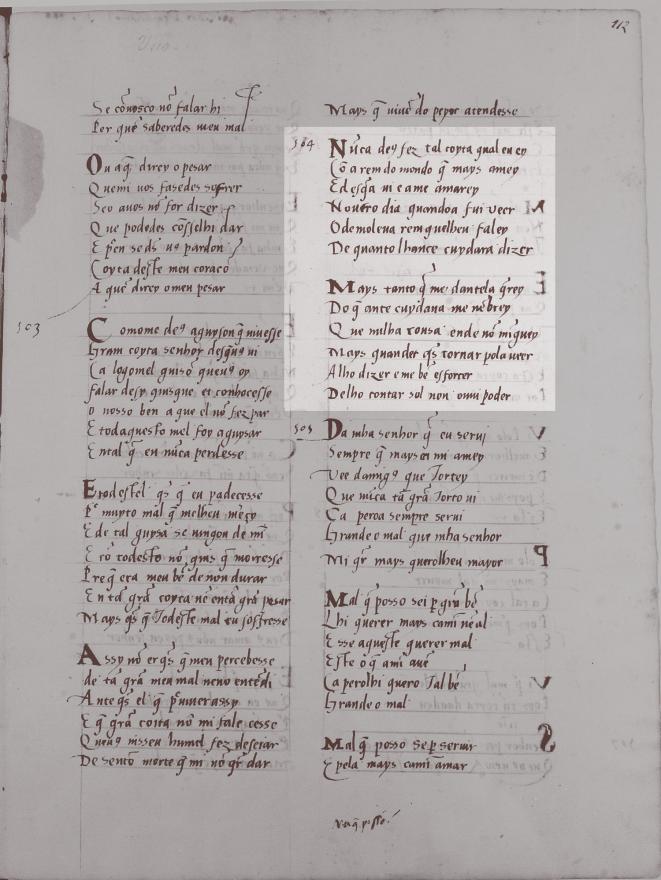 112
Se cõuosco nõ falar hi
Per que saberedes meu mal
Ou a q̃ direy o pesar
Que mi uos fasedes sofrer
Se o auos nõ for dizer
Que podedes cõsselhi dar
E pẽn se ds̃ uꝯ pardon
Coyta deste meu coraco
A que direy o meu pesar
503
Como me deꝯ aguyson q̃ niuesse
Gram coyta senhor desq̃uꝯ ui
Ca logo mel guisõ queuꝯ oy
falar desy quisque et conhocesse
o nosso ben a que el nõ fez par
E todaquesto mel foy aguysar
En tal q̃ en nũca perdesse
E todestel q̃s q̃ eu padecesse
Pꝰ muyto mal q̃ melheu meẽço
E de tal guysa se uingou de mĩ
E cõ todesto nõ quis q̃ moiresse
Pre q̃ era meu bẽ de non durar
En tã grã coyta nẽ entã grã pesar
Mays q̃s q̃ todeste mal eu sofresse
Assy nõ erq̃s q̃ meu percebesse
de tã grã meu mal neno entẽdi
Ante q̃s el q̃ pꝰ uiuer assy
E q̃ grã coita nõ mi fale cesse
Queuꝯ nisseu hu mel fez deseiar
De sentõ morte q̃ mi nõ q̃r dar
Mays q̃ uiuẽdo peyor atendesse
504
Nũca deꝯ fez tal coyta qual eu ey
Cõ a rem do mondo q̃ mays amey
E desq̃a ui e ame amarey
Noutro dia quandoa fui ueer
O demo leua rem que lheu faley
De quanto lhante cuydara dizer
Mays tanto q̃ me dantela q̃rey
Do q̃ ante cuydaua me nẽbrey
Que nulha cousa ende nõ miguey
Mays quander q̃s tornar pola ueer
A lho dizer e me bẽ esforcer
De lho contar sol non ouui poder
505
Da mha senhor q̃ eu serui
Sempre q̃ mays ca mi amey
Veedamigꝯ que tortey
Que nũca tã grã torto ui
Ca pero a sempre serui
Grande o mal que mha senhor
Mi q̃r mays querolheu mayor
Mal q̃ posso sei p̱ grã bẽ
Lhi querer mays cami nẽ al
E sse aqueste querer mal
Este o q̃ ami auẽ
Ca pero lhi quero tal bẽ
Grande o mal
Mal q̃ posso se p̱ seruir
E pela mays cami amar